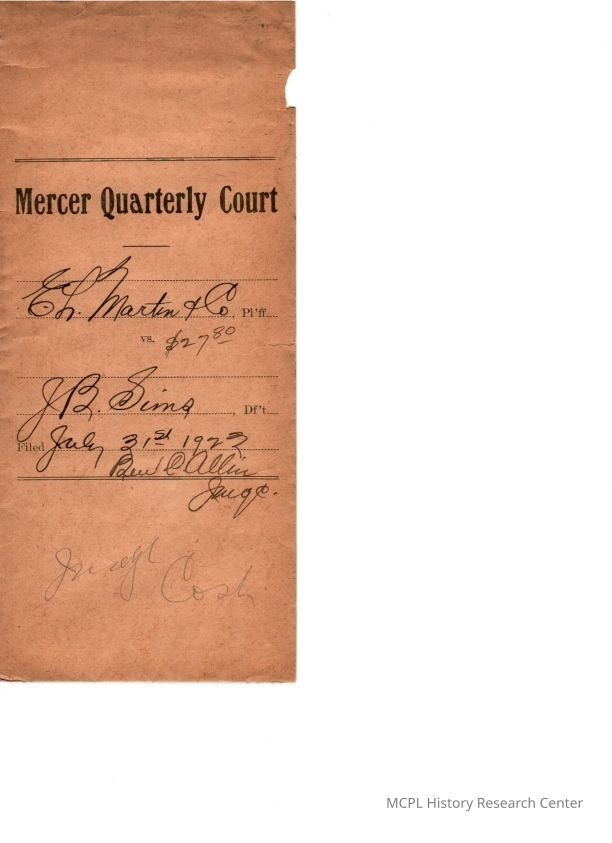 Mercer Quarterly Court
E. L. Martin & Co, Pl'ff.
vs. $27 80
J. B. Sims, Df't.
Filed July 31st 1923
Ben C Allin
Judge.
Judgt
Cost
MCPL History Research Center